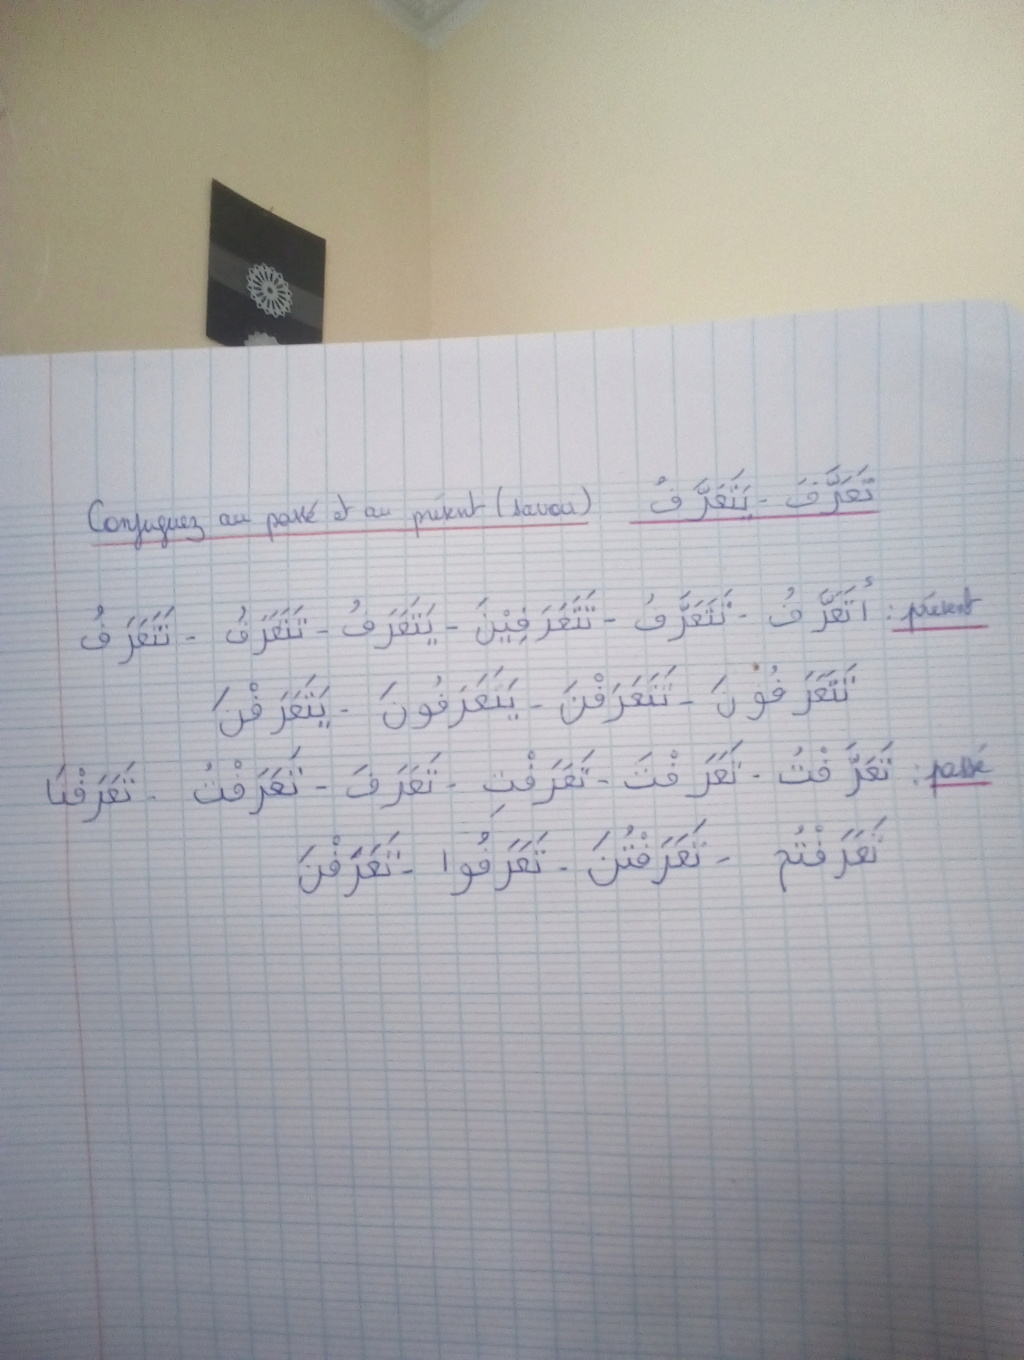 Conjuguez au passé et au présent (savoir) تَعَرَّفَ - يَتَعَرَّفُ
présent : أَتَعَرَّفُ - تَتَعَرَّفُ - تَتَعَرَفِيْنَ - يَتَعَرَفُ - تَتَعَرَفُ - نَتَعَرَفُ
تَتَعَرَفُوْنَ - تَتَعَرَفْنَ - يَتَعَرَفُونَ - يَتَعَرَفْنَ
passé : تَعَرَّفْتُ - تَعَرَفْتَ - تَعَرَفْتِ - تَعَرَفَ - تَعَرَفْتُ - تَعَرَفْنَا
تَعَرَفْتُم - تَعَرَفْتُنَ - تَعَرَفُوا - تَعَرَفْنَ